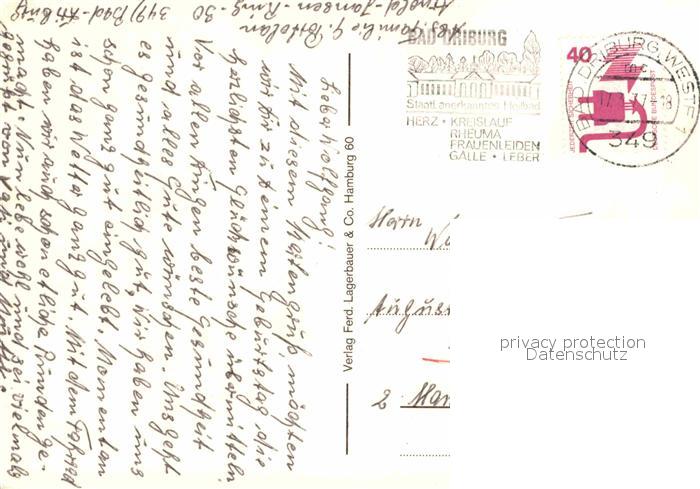 Abs. Familie G. Bittolan
Arnold-Janssen-Ring-30 3490 Bad-Driburg
Lieber Wolfgang!
Mit diesem Kartengruß möchten
wir Dir zu deinem Geburtstag die
herzlichsten Glückwünsche übermitteln
Vor allen Dingen beste Gesundheit
und alles Gute wünschen. Uns geht
es gesundheitlich gut, wir haben uns
schon ganz gut eingelebt. Momentan
ist das Wetter ganz gut. Mit dem Fahrrad
haben wir auch schon etliche Runden ge-
macht. Nun lebe wohl und sei vielmals
gegrüßt von Vati und Mutti.
Verlag Ferd. Lagerbauer & Co. Hamburg 60
BAD DRIBURG
Staatl. anerkanntes Heilbad
HERZ • KREISLAUF
RHEUMA
FRAUENLEIDEN
GALLE • LEBER
40
JEDERZEIT SICHERHEIT
DEUTSCHE BUNDESPOST
BAD DRIBURG, WESTF 1
mc
349
Herrn
Wo
August
2 Ham
privacy protection
Datenschutz